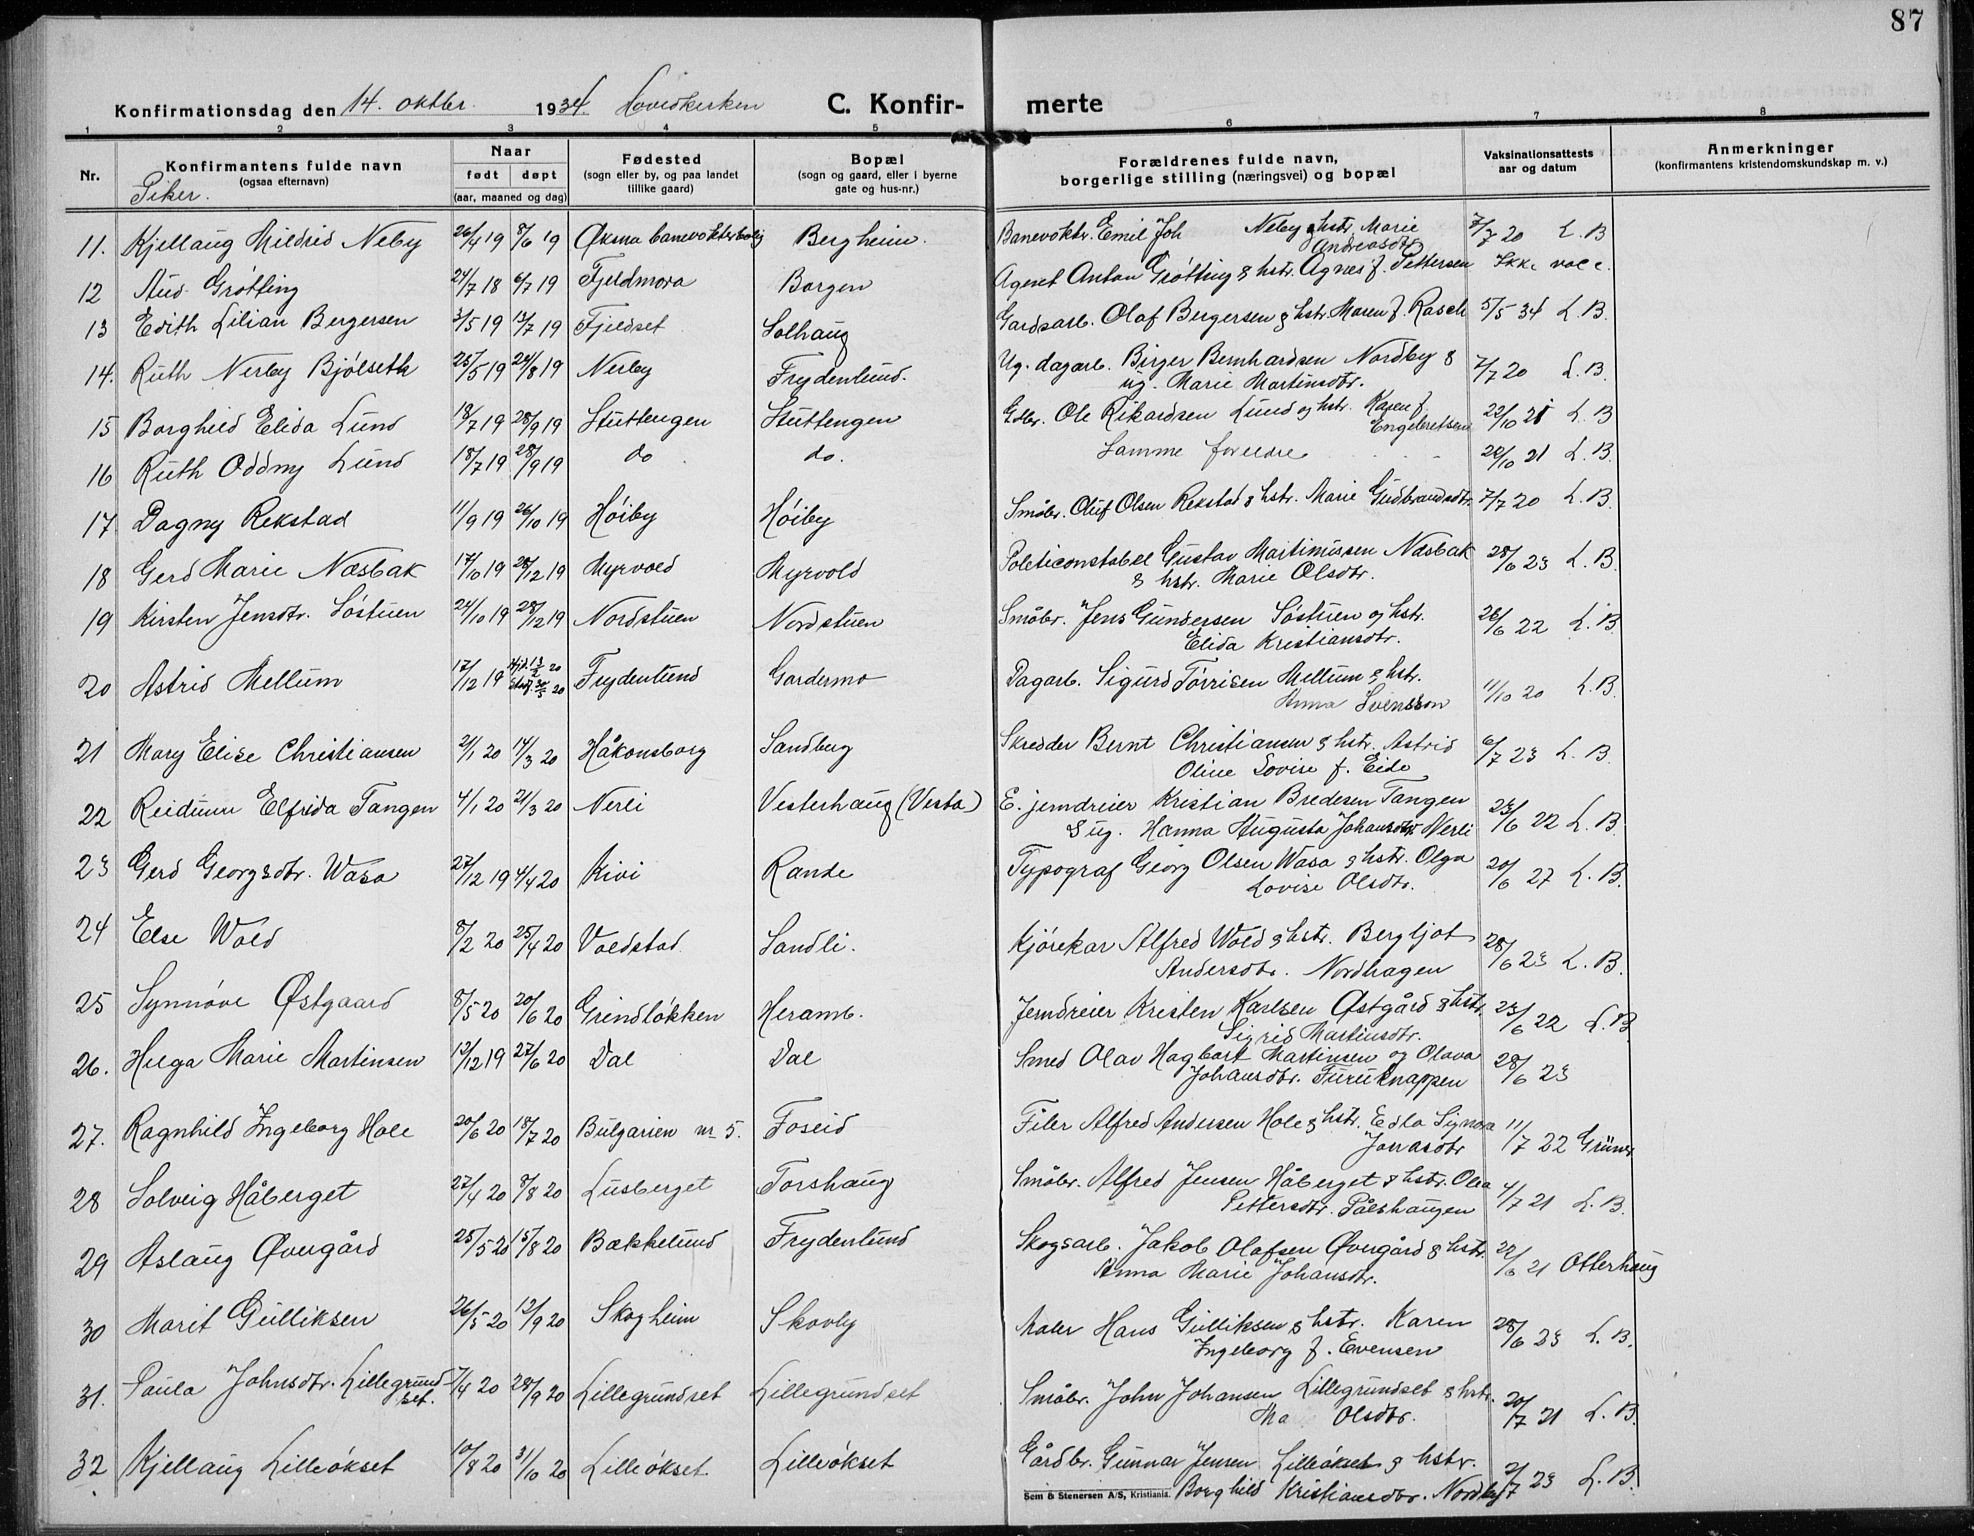 87
Konfirmationsdag den 14. oktbr. 1934. Hovedkirken C. Konfir- merte
1 2 3 4 5 6 7 8
Nr. Konfirmantens fulde navn (ogsaa efternavn) Naar født døpt (aar, maaned og dag) Fødested (sogn eller by, og paa landet tillike gaard) Bopæl (sogn og gaard, eller i byerne gate og hus-nr.) Forældrenes fulde navn, borgerlige stilling (næringsvei) og bopæl Vaksinationsattests aar og datum Anmerkninger (konfirmantens kristendomskundskap m. v.)
Piker.
11. Kjellaug Mildrid Neby 26/4 19 8/6 19 Øksna banevokterbolig Bergheim. Banevoktr. Emil Joh Neby & hstr. Marie Andreasdtr. 7/7 20 L. B
12 Aud Grötting 24/7 18 6/7 19 Fjeldmora Borgen Agent Anton Grötting & hstr. Agnes f. Pettersen Ikke vacc.
13 Edith Lilian Bergersen 3/5 19 13/7 19 Fjeldset Solhaug Gardsarb. Olaf Bergersen & hstr. Maren f. Rasch 5/5 34 L. B.
14. Ruth Nerby Bjölseth 25/5 19 24/8 19 Nerby Frydenlund. Ug. dagarb. Birger Bernhardsen Nordby &
ug. Marie Martinsdtr. 7/7 20 L. B.
15 Borghild Elida Lund 18/7 19 28/9 19 Stuttengen Stuttengen Gdbr. Ole Rikardsen Lund og hstr. Karen f.
Engebretsen 22/10 21 L. B
16 Ruth Oddny Lund 18/7 19 28/9 19 do do. Samme foreldre 22/10 21 L. B.
17. Dagny Rekstad 11/9 19 26/10 19 Höiby Höiby Småbr. Oluf Olsen Rekstad & hstr. Marie Gudbrandsdtr. 7/7 20 L. B.
18 Gerd Marie Næsbak 17/10 19 28/12 19 Myrvold Myrvold Politiconstabel Gustav Martinussen Næsbak
& hstr. Marie Olsdtr. 28/6 23 L. B.
19 Kirsten Jensdtr. Söstuen 24/10 19 28/12 19 Nordstuen Nordstuen Småbr. Jens Gundersen Söstuen og hstr.
Elida Kristiansdtr. 26/6 22 L. B.
20 Astrid Mellum 17/12 19 Hjd. 13/2 20 Stadf. 30/5 20 Frydenlund Gardermo Dagarb. Sigurd Törrisen Mellum & hstr.
Anna Svensson 11/10 20 L. B.
21 Mary Elise Christiansen 2/1 20 14/3 20 Håkonsborg Sandberg Skredder Bernt Christiansen & hstr. Astrid
Oline Lovise f. Eide 6/7 23 L. B.
22 Reidunn Elfrida Tangen 4/1 20 21/3 20 Nerli Vesterhaug (Vesta) E. jerndreier Kristian Bredesen Tangen
& ug. Hanna Augusta Johansdtr. Nerli 23/6 22 L. B.
23 Gerd Georgsdtr. Wasa 27/12 19 4/4 20 Kivi Rande Typograf Georg Olsen Wasa & hstr. Olga
Lovise Olsdtr. 20/6 27 L. B.
24 Else Wold 8/2 20 25/4 20 Voldstad Sandli. Kjörekar Alfred Wold & hstr. Bergljot
Andersdtr. Nordhagen 28/6 23 L. B.
25 Synnöve Østgaard 8/5 20 20/6 20 Grindlökken Heramb. Jerndreier Kristen Karlsen Østgård & hstr.
Sigrid Martinsdtr. 23/6 22 L. B
26. Helga Marie Martinsen 12/12 19 27/6 20 Dal Dal Smed Olav Hagbart Martinsen og Olava
Johansdtr. Furuknappen 28/6 23
27. Ragnhild Ingeborg Hole 20/6 20 18/7 20 Bulgarien nr 5. Foseid Filer Alfred Andersen Hole & hstr. Edla Signora
Jonasdtr 11/7 22 Grüner
28 Solveig Håberget 27/4 20 8/8 20 Lusberget Torshaug Småbr. Alfred Jensen Håberget & hstr. Olea
Pettersdtr. Pålshaugen 4/7 21 L. B.
29 Aslaug Øvergård 25/5 20 15/8 20 Bækkelund Frydenlund Skogsarb. Jakob Olafsen Övergård & hstr.
Anna Marie Johansdtr. 22/6 21 Otterhaug
30 Marit Gulliksen 26/5 20 12/9 20 Skogheim Skovly Maler Hans Gulliksen & hstr. Karen
Ingeborg f. Evensen 28/6 23 L. B.
31. Paula Johnsdtr. Lillegrundset. 7/4 20 28/9 20 Lillegrundset Lillegrundset Småbr. John Johansen Lillegrundset & hstr.
Ma Olsdtr. 20/7 21 L. B.
32 Kjellaug Lilleökset 10/8 20 31/10 20 Lilleökset Lilleökset Gårdbr. Gunnar Jensen Lilleökset & hstr.
Borghild Kristiansdtr. Nordby 2/7 23 L. B.
Sem & Stenersen A/S, Kristiania.